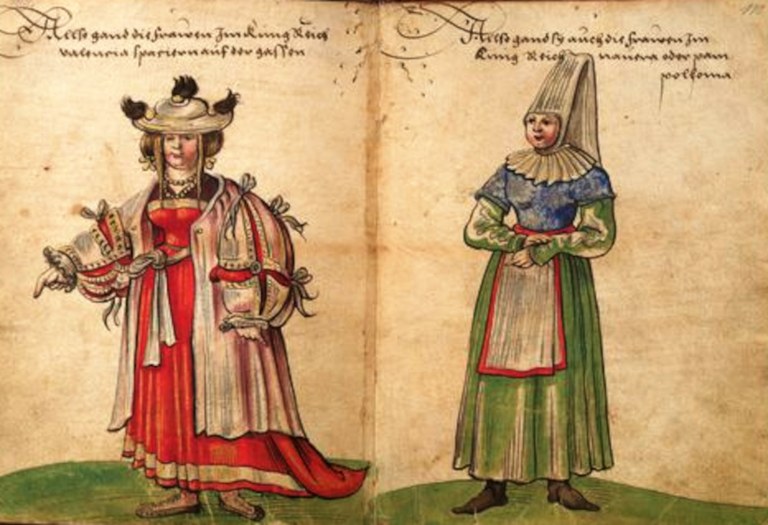 Allso gand die frawen Im kung Reich
valencia spaciern auf der gassen
Allso gand sy auch die frawen Im
kung Reich nauera oder pam
pollonia